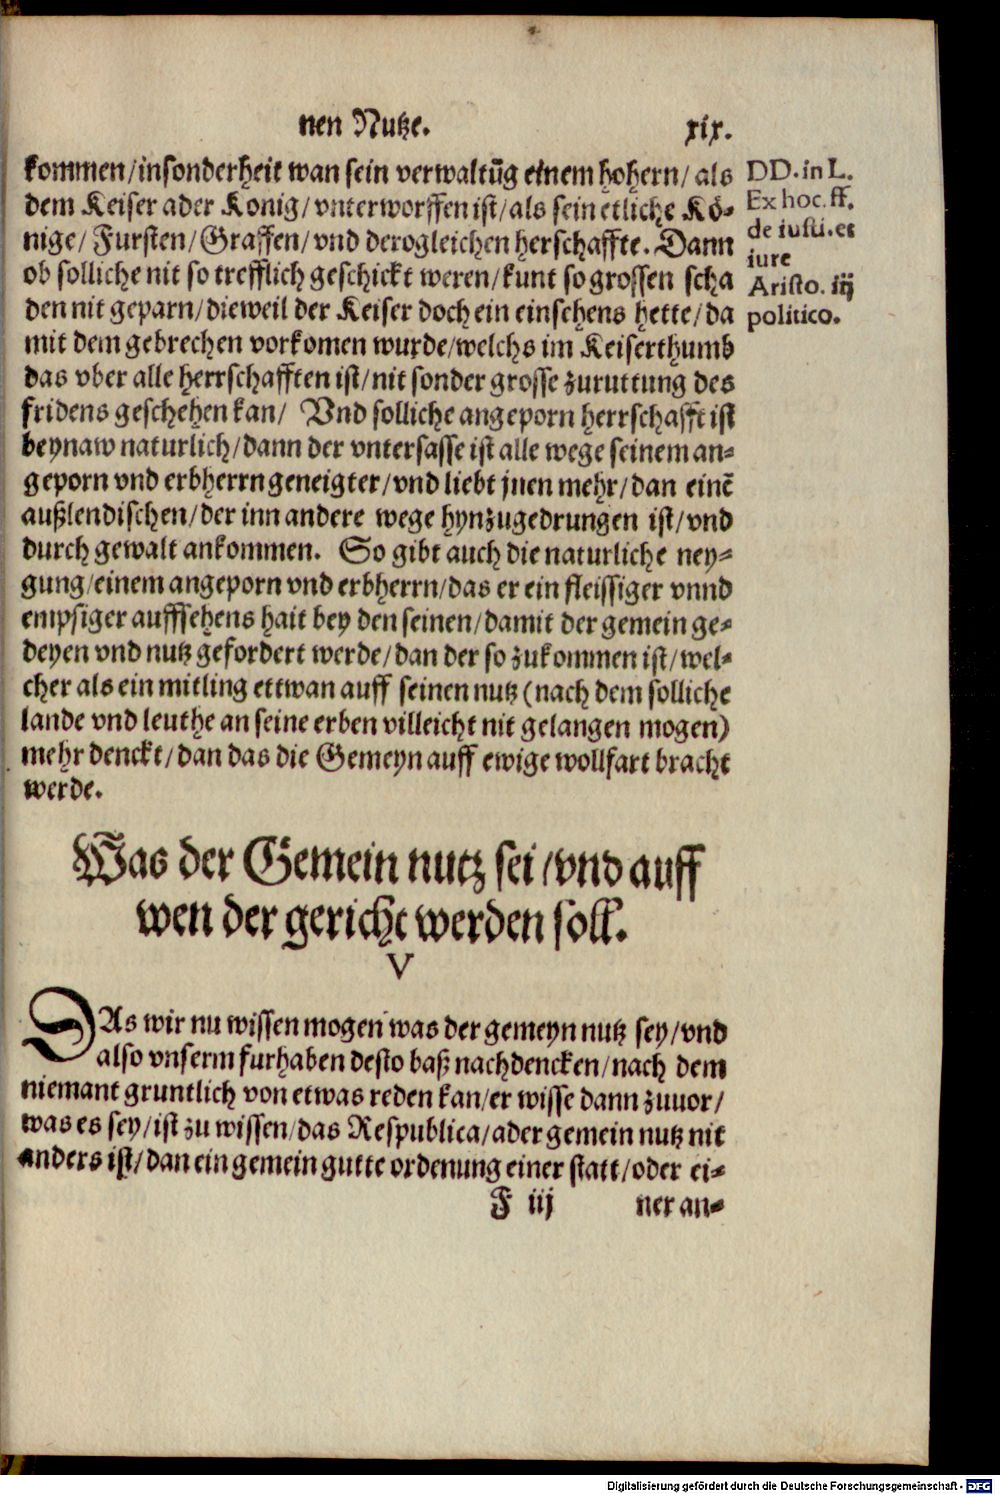 nen Nutze. xix.
kommen/insonderheit wan sein verwaltūg einem hohern/ als
dem Keiser ader Konig/vnterworffen ist/als sein etliche Kö-
nige/ Fursten/Graffen/vnd derogleichen herschaffte. Dann
ob solliche nit so trefflich geschickt weren/kunt so grossen scha
den nit geparn/dieweil der Keiser doch ein einsehens hette/da
mit dem gebrechen vorkomen wurde/welchs im Keiserthumb
das vber alle herrschafften ist/nit sonder grosse zuruttung des
fridens geschehen kan/ Vnd solliche angeporn herrschafft ist
beynaw naturlich/dann der vntersasse ist alle wege seinem an-
geporn vnd erbherrn geneigter/vnd liebt jnen mehr/dan einē
außlendischen/der inn andere wege hynzugedrungen ist/vnd
durch gewalt ankommen. So gibt auch die naturliche ney-
gung/einem angeporn vnd erbherrn/das er ein fleissiger vnnd
empsiger auffsehens hait bey den seinen/damit der gemein ge-
deyen vnd nutz gefordert werde/dan der so zukommen ist/wel-
cher als ein mitling ettwan auff seinen nutz (nach dem solliche
lande vnd leuthe an seine erben villeicht nit gelangen mogen)
mehr denckt/dan das die Gemeyn auff ewige wollfart bracht
werde.
DD. in L.
Ex hoc. ff.
de iusti. et
iure
Aristo. iij
politico.
Was der Gemein nutz sei/vnd auff
wen der gericht werden soll.
V
DAs wir nu wissen mogen was der gemeyn nutz sey/vnd
also vnserm furhaben desto baß nachdencken/nach dem
niemant gruntlich von etwas reden kan/er wisse dann zuuor/
was es sey/ist zu wissen/das Respublica/ader gemein nutz nit
anders ist/dan ein gemein gutte ordenung einer statt/oder ei-
F iij ner an-
Digitalisierung gefördert durch die Deutsche Forschungsgemeinschaft - DFG